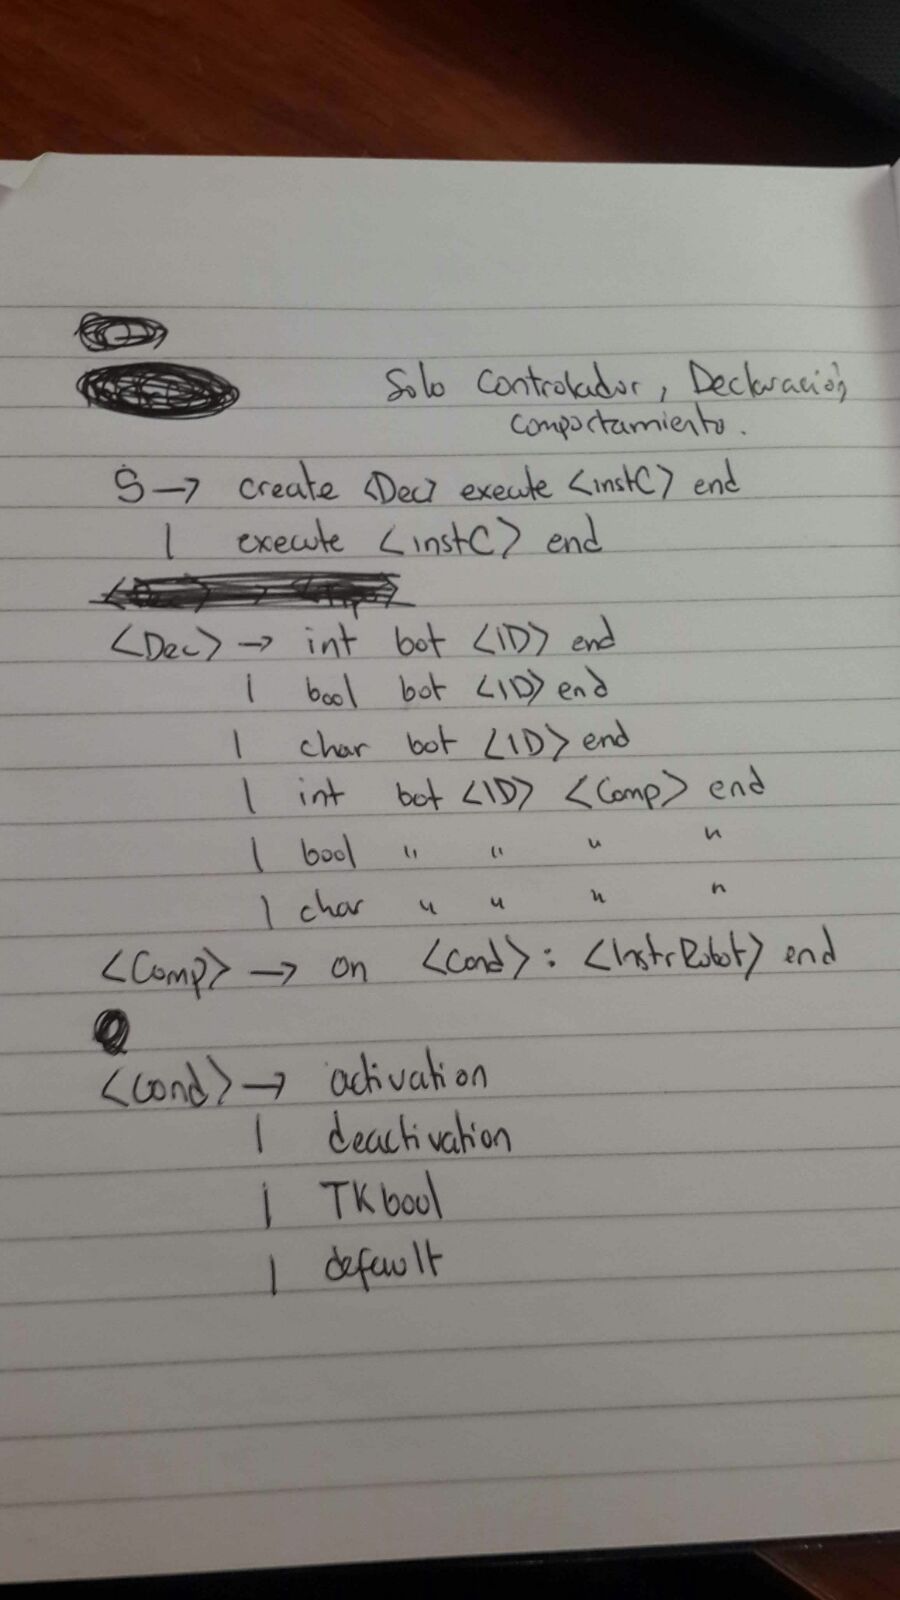 Solo Controlador, Declaración,
comportamiento.
S → create <Dec> execute <instC> end
| execute <instC> end
<Dec> → int bot <ID> end
| bool bot <ID> end
| char bot <ID> end
| int bot <ID> <Comp> end
| bool " " " "
| char " " " "
<Comp> → on <Cond> : <InstrRobot> end
<Cond> → activation
| deactivation
| TKbool
| default